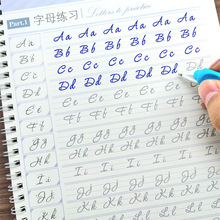 Part.1 字母练习 Letters to practise
Aa Aa Aa Aa Aa Aa
Bb Bb Bb Bb Bb Bb
Cc Cc Cc Cc Cc Cc
Dd Dd Dd Dd Dd Dd
Ee Ee Ee Ee Ee Ee
Ff Ff Ff Ff Ff Ff
Gg Gg Gg Gg Gg Gg
Hh Hh Hh Hh Hh Hh
Ii Ii Ii Ii Ii Ii
Jj Jj Jj Jj Jj Jj
Kk Kk Kk Kk Kk Kk